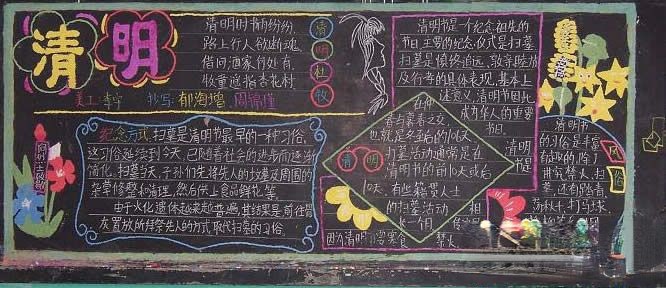 清明
清明时节雨纷纷
路上行人欲断魂
借问酒家何处有
牧童遥指杏花村
清明杜牧
美工:李宁 抄写:郁海增 周锦儒
纪念方式 扫墓是清明节最早的一种习俗,
这习俗延续到今天,已随着社会的进步而逐渐
简化。扫墓当天,子孙们先将先人的坟墓及周围的
杂草修整和清理,然后供上食品鲜花等。
由于火化遗体越来越普遍,其结果是前往骨
灰置放地拜祭先人的方式取代扫墓的习俗。
清明节是一个纪念祖先的
节日,主要的纪念仪式是扫墓
扫墓是慎终追远、敦亲睦族
及行孝的具体表现,基本上
述意义,清明节因此
成为华人的重要
节日。
清明节是
在仲
春与暮春之交
也就是冬至后的106天
扫墓活动通常是在
清明节的前10天或后
10天。有些籍贯人士
的扫墓活动
清明
相传
因为清明节需寒食
禁火
清明节
的习俗是丰富
有趣的,除了
讲究禁火、扫
墓,还有踏青
荡秋千、打马球
风俗